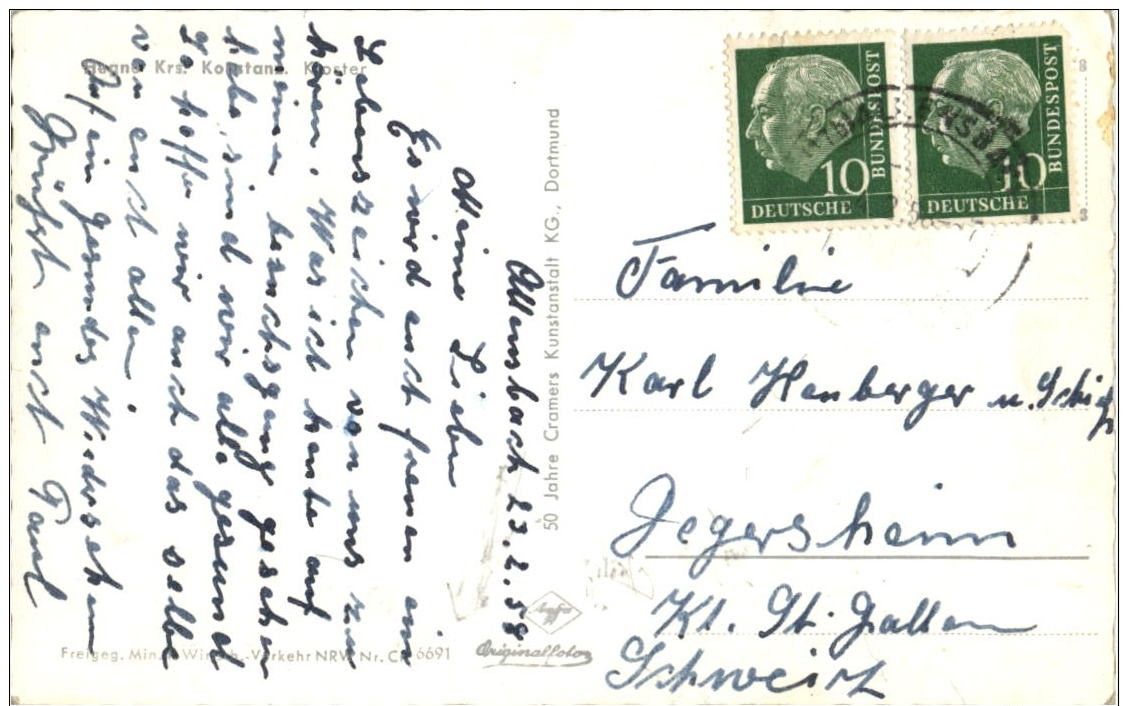 Hegne Krs. Konstanz. Kloster
Allensbach 23.2.58
Meine Lieben
Es wird euch freuen ein
Lebenszeichen von uns zu
hören. Was ich heute auf
meinen gesehen
habe, sind wir alle gesund
So hoffen wir auch das selbe
von euch allen.
Auf ein gesundes Wiedersehen
Grüsst euch Paul
50 Jahre Cramers Kunstanstalt KG., Dortmund
Freigeg. Min. f. Wirtsch.-Verkehr NRW Nr. CP 6691
Agfa
Originalfoto
10
BUNDESPOST
DEUTSCHE
10
BUNDESPOST
DEUTSCHE
Familie
Karl Hauberger u.
Jegersheim
Kt. St. Gallen
Schweiz